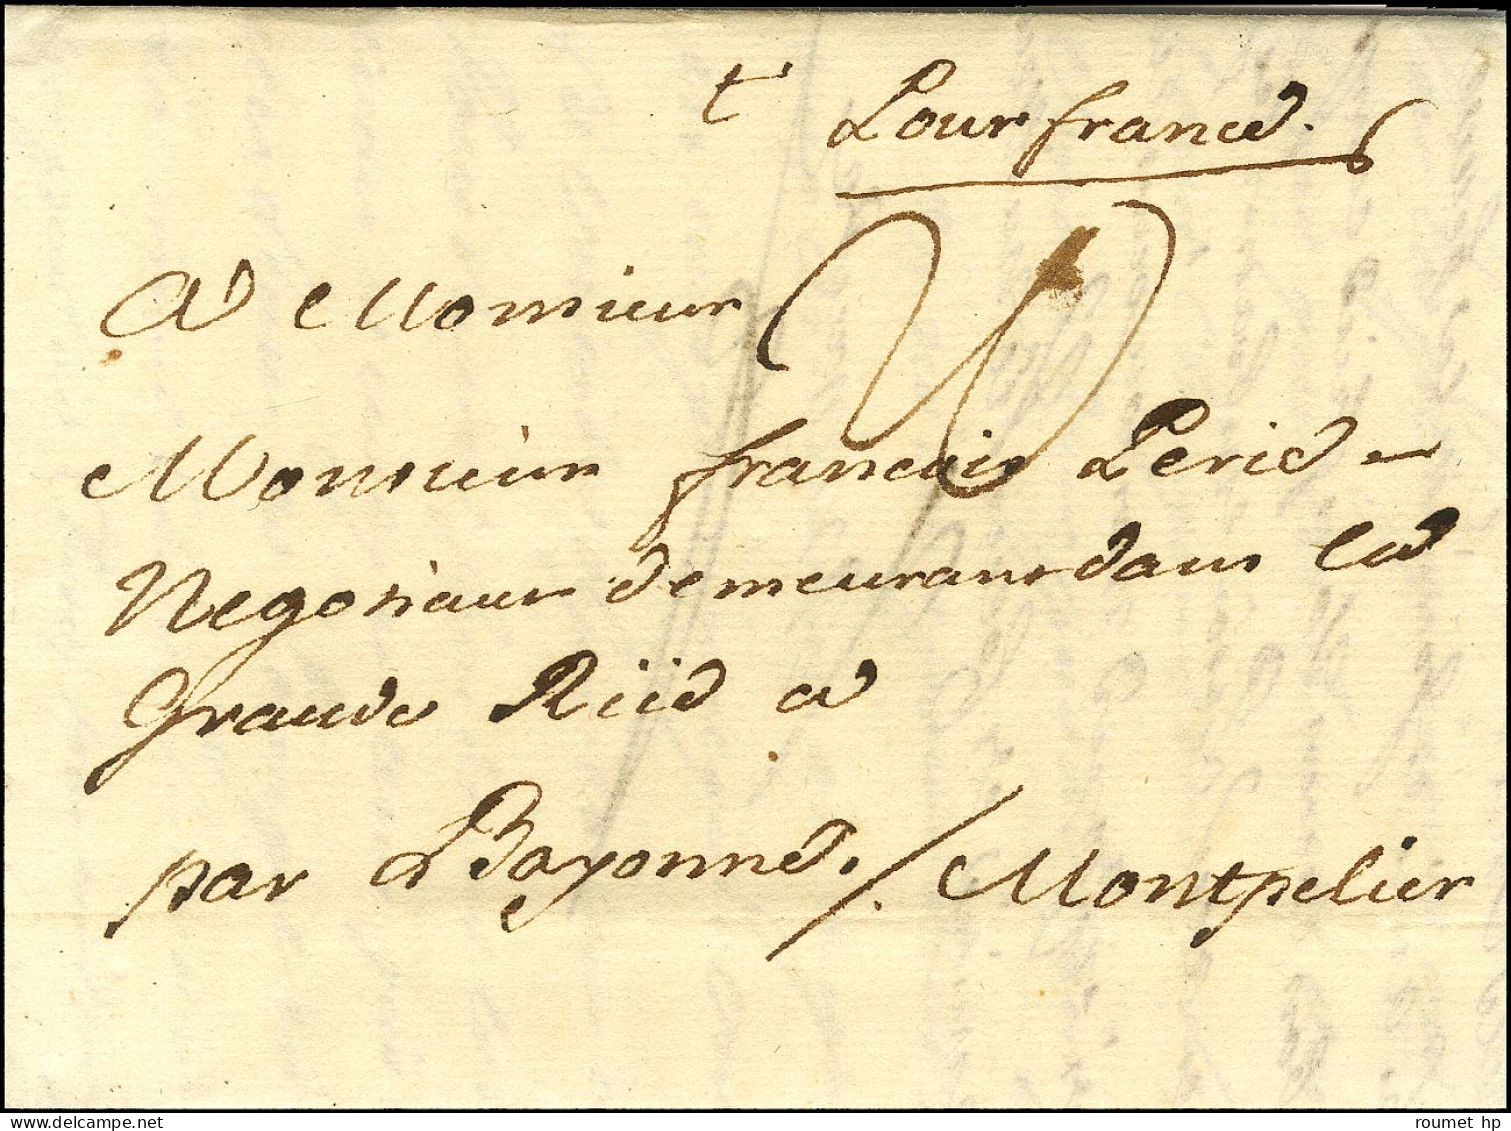 t Pour france.
A Monsieur
Monsieur francois Perie
Negosiant demeurant dans La
Grande Rüe a
par Bayonne. / Montpelier
roumet hp